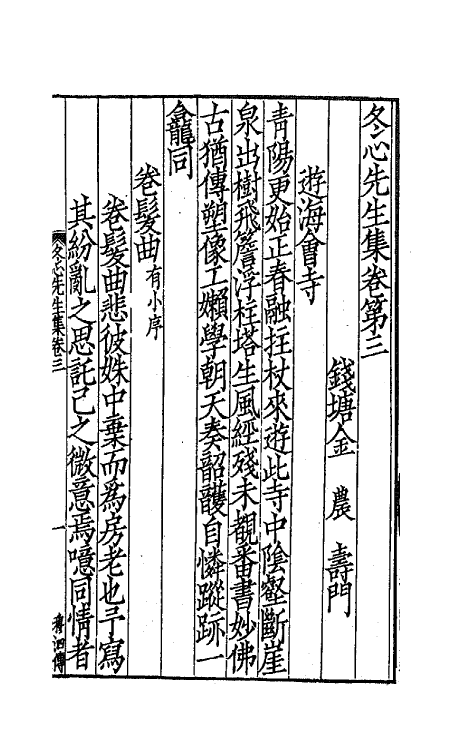 冬心先生集卷第三
錢塘金 農 壽門
遊海會寺
青陽更始正春融拄杖來遊此寺中陰壑斷崖
泉出樹飛簷浮柱塔生風經殘未覩番書妙佛
古猶傳塑像工嬾學朝天奏韶頀自憐蹤跡一
龕龍同
卷髮曲有小序
卷髮曲悲彼姝中棄而爲房老也予寫
其紛亂之思託己之微意焉噫同情者
冬心先生集卷三
一